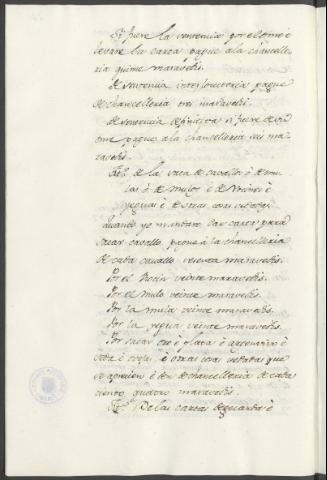 Et fuere la sentencia por el ome è
levare la carta pague ala chancelle-
ria quinse maravedis.
de sentenia interlocutoria pague
de chancelleria tres maravedis.
de sentencia difinitiva si fuere de un
ome pague ala chancelleria seis ma-
ravedis.
Titº. de la saca de cavallos ò de mu-
las ò de mulos è de rocines è
yeguas è de otras cosas vedadas.
Quando yo mandare dar carta para
sacar cavallo, pague à la chancelleria
de cada cavallo setenta maravedis.
Por el Rocin veinte maravedis.
Por el mulo veinte maravedis.
Por la mula veinte maravedis.
Por la yegua veinte maravedis.
Por sacar oro è plata è
seda è è otras cosas vedadas que
se aprecien è den de chancelleria de cada
ciento quatro maravedis.
Titº. De las cartas de guarda è